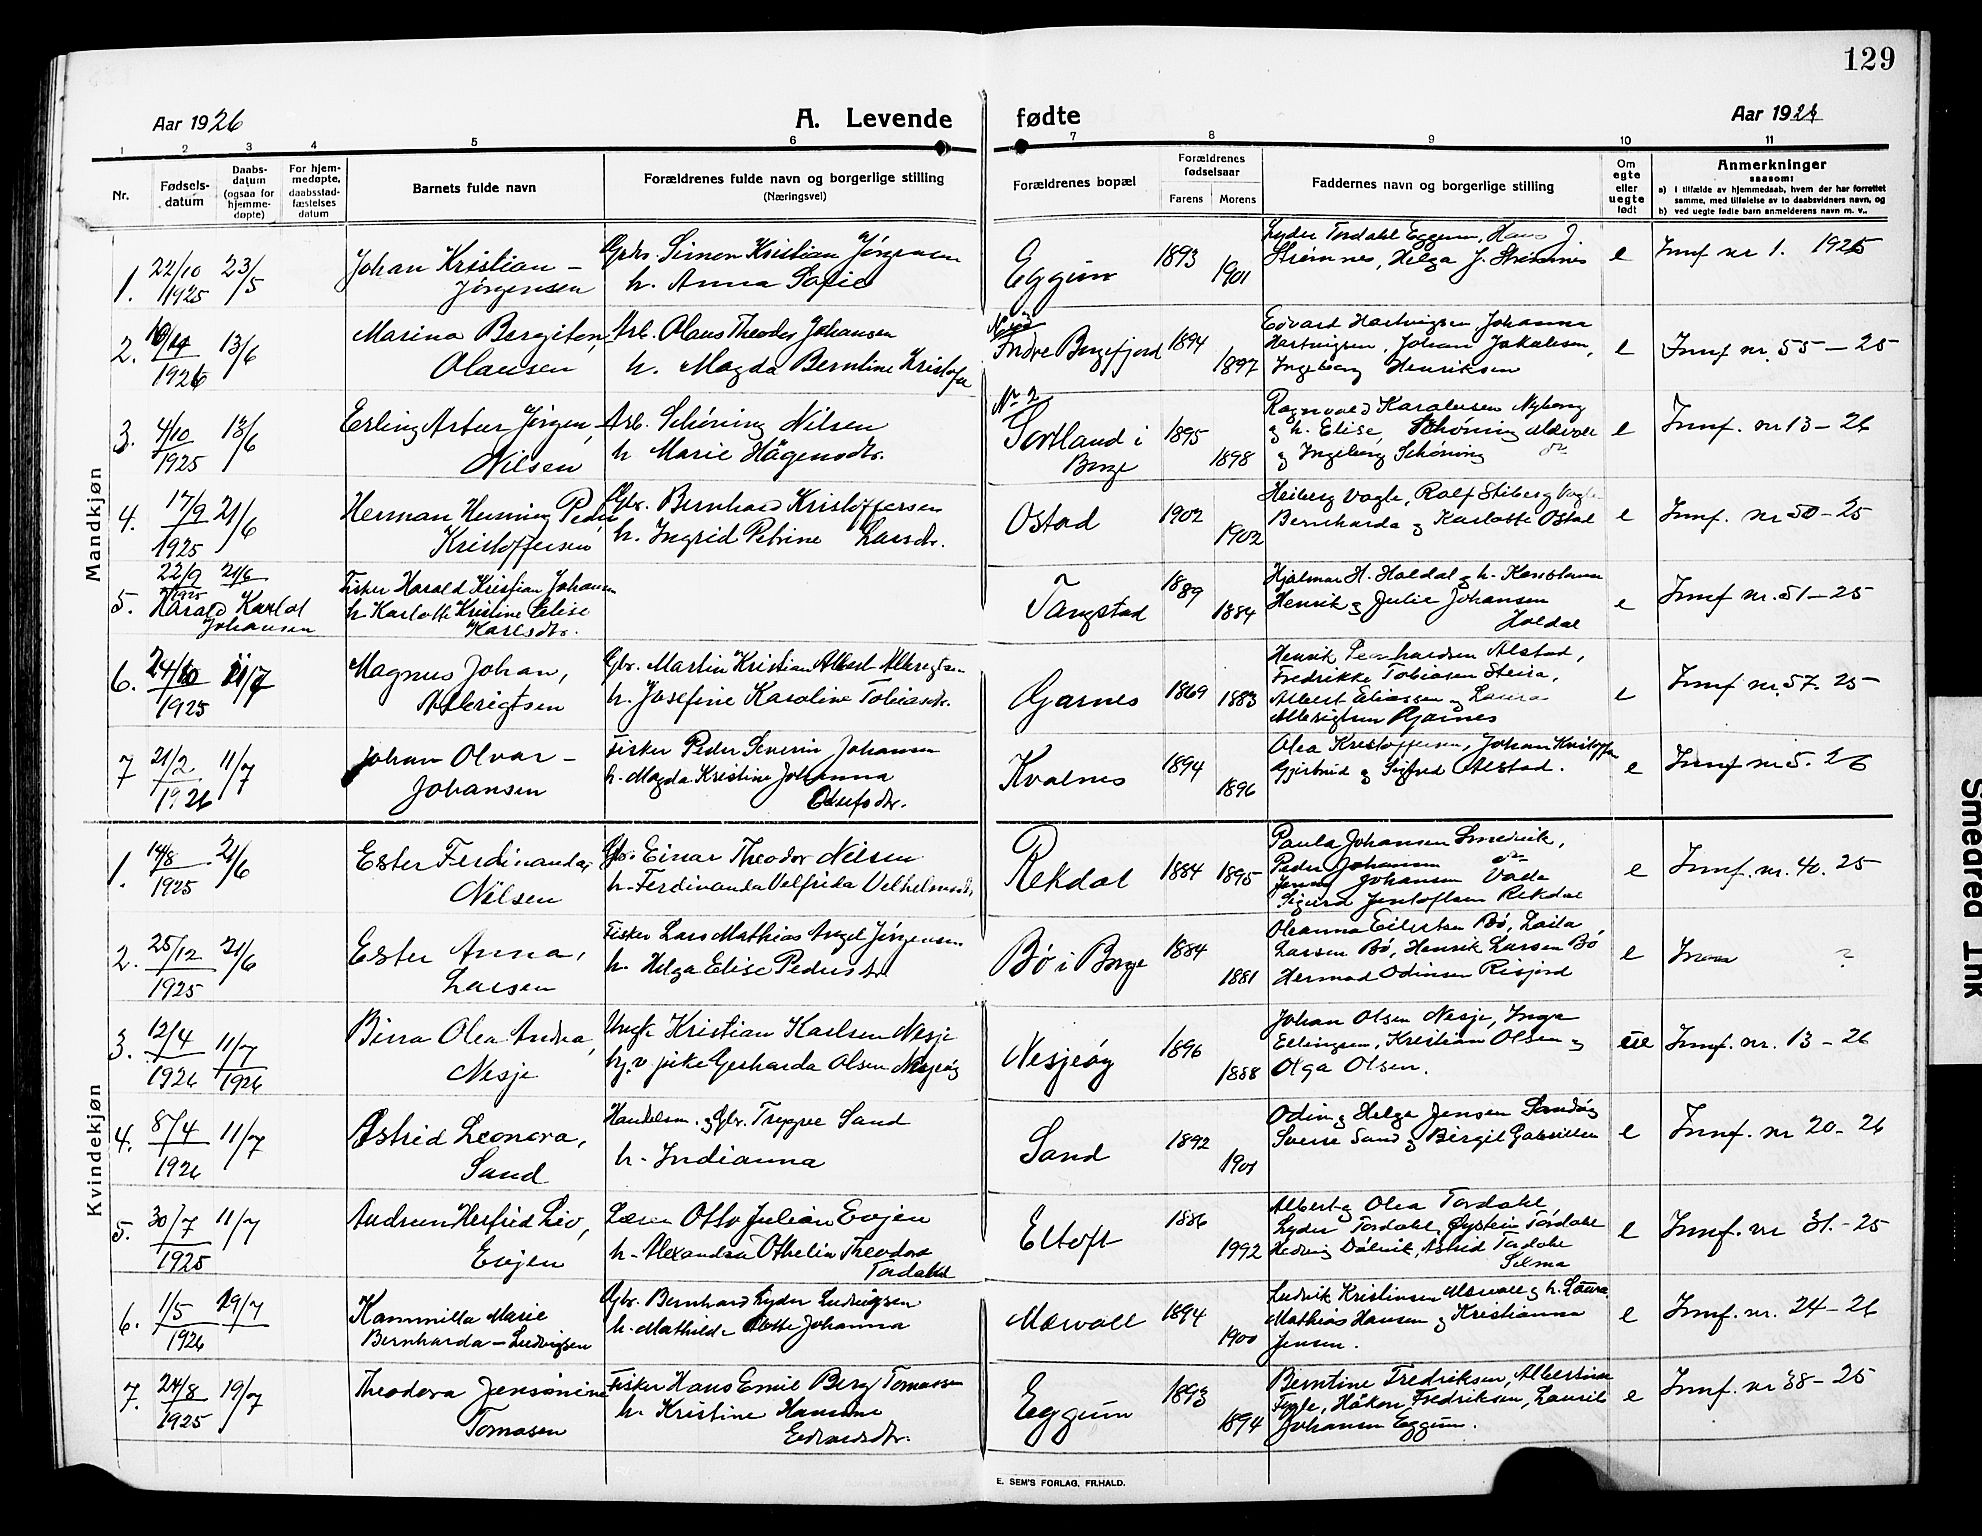 129
Aar 1926
A. Levende fødte
Aar 1926
1 2 3 4 5 6 7 8 9 10 11
Nr.
Fødsels-
datum
Daabs-
datum
(ogsaa for
hjemme-
døpte)
For hjem-
medøpte,
daabsstad-
fæstelses
datum
Barnets fulde navn
Forældrenes fulde navn og borgerlige stilling
(Næringsvei)
Forældrenes bopæl
Forældrenes
fødselsaar
Farens Morens
Faddernes navn og borgerlige stilling
Om
egte
eller
uegte
født
Anmerkninger
saasom:
a) I tilfælde av hjemmedaab, hvem der har forrettet
samme, med tilføielse av to daabsvidners navn, og
b) ved uegte fødte barn anmelderens navn m. v..
Mandkjøn
1. 22/10 1925 23/5
Johan Kristian -
Jørgensen
Gbr. Simon Kristian Jørgensen
h. Anna Sofie
Eggum
1893 1901
Lyder Tordahl Eggum, Hans J.
Strømnes, Helga J. Strømnes
e
Innf nr 1. 1925
2. 1926 13/6
Marina Bergiton,
Olausen
Arb. Olaus Theodor Johansen
h. Magda Berntine Kristofer
Indre Borgefjord
1894 1897
Edvard Hartvigsen, Johanna
Hartvigsen, Johan Jakobsen,
Ingeborg Henriksen
e
Innf nr. 55 - 25
3. 4/10 1925 13/6
Erling Artur Jørgen,
Nilsen
Arb. Schøning Nilsen
h Marie Hågensdtr.
No 2
Sortland i
Borge
1895 1898
Ragnvald Karolusen Nyborg
og h. Elise, Schøning Mærvoll
og Ingeborg Schøning
e
Innf. nr 13 - 26
4. 17/9 1925 21/6
Herman Henning Peder
Kristoffersen
Gbr. Bernhard Kristoffersen
h. Ingrid Petrine Larsdtr.
Ostad
1902 1902
Heiberg Vagle, Rolf Stiberg Vagle
Bernharda og Karlotte Ostad
e
Innf. nr 50 - 25
5. 22/9 1925 21/6
Harald Karlot
Johansen
Fisker Harald Kristian Johansen
h Karlotte Kristine Elise
Karlsdtr.
Tangstad
1889 1884
Hjalmar H. Holdal og h. Konstanse
Henrik og Julie Johansen
Holdal
e
Innf nr. 51 - 25
6. 24/10 1925 11/7
Magnus Johan,
Albrigtsen
Gbr. Martin Kristian Albert Albrigtsen
h. Josefine Karoline Tobiasdtr.
Gjarnes
1869 1883
Henrik Alstad,
Fredrikke Tobiasen Steira,
Albert Eliassen og Laura
Albrigtsen Gjarnes
e
Innf nr. 57. 25
7 21/2 1926 11/7
Johan Olvar -
Johansen
Fisker Peder Severin Johansen
h. Magda Kristine Johanna
Olufsdtr.
Kvalnes
1894 1896
Olea Kristoffersen, Johan Kristoffer
Gjertrud og Sigfred Alstad.
e
Innf nr 5. 26
Kvindekjøn
1. 14/8 1925 21/6
Ester Ferdinanda,
Nilsen
Gbr. Einar Theodor Nilsen
h. Ferdinanda Valfrida Velhelmsdtr.
Rekdal
1884 1895
Paula Johansen Smedvik,
Peder Johansen do
Jenny Johansen Valle
Sigurd Jentoftsen Rekdal
e
Innf. nr. 40. 25
2. 25/12 1925 21/6
Ester Anna,
Larsen
Fisker Lars Mathias Angel Jørgensen
h. Helga Elise Pedersdtr
Bø i Borge
1884 1881
Oleanna Eilertsen Bø, Laila
Larsen Bø, Henrik Larsen Bø
Hermod Odinsen Risjord
e
?
3. 12/4 1926 11/7 1926
Birra Olea Andrea,
Nesje
Ungk Kristian Karlsen Nesje
og pike Gerharda Olsen Nesjeøy
Nesjeøy
1896 1888
Johan Olsen Nesje, Inga
Ellingsen, Kristian Olsen og
Olga Olsen.
ue
Innf. nr. 13 - 26
4. 8/4 1926 11/7
Astrid Leonora,
Sand
Handelsm. og Gbr. Trygve Sand
h. Indianna
Sand
1892 1901
Odin og Helga Jensen Sandøy
Sverre Sand og Birgit Gabrielsen
e
Innf. nr 20 - 26
5. 30/7 1925 11/7
Audrun Herfrid Liv,
Evjen
Lærer Otto Julian Evjen
h. Alexandra Othelie Theodora
Tordahl
Eltoft
1886 1992
Albert og Olea Tordahl
Lyder Tordahl, Øystein Tordahl
Hedvig Dalvik, Astrid Tordahl
Selma
e
Innf. nr 31. - 25
6. 1/5 1926 19/7
Kammilla Marie
Bernharda - Ludvigsen
Gbr. Bernhard Lyder Ludvigsen
h. Mathilde Lotte Johanna
Mærvoll
1894 1900
Ludvik Kristensen Mærvoll og h. Laura
Mathias Hansen og Kristianna
Jensen.
e
Innf. nr. 24 - 26
7. 24/8 1925 19/7
Theodora Jensonine
Tomasen
Fisker Hans Emil Berg Tomassen
h. Kristine Hansine
Edvardsdtr.
Eggum
1893 1894
Berntine Fredriksen, Albertina
Fygle, Håkon Fredriksen, Laurits
Johansen Eggum.
e
Innf. nr 38 - 25
E. SEM'S FORLAG, FR.HALD.
Smeared Ink